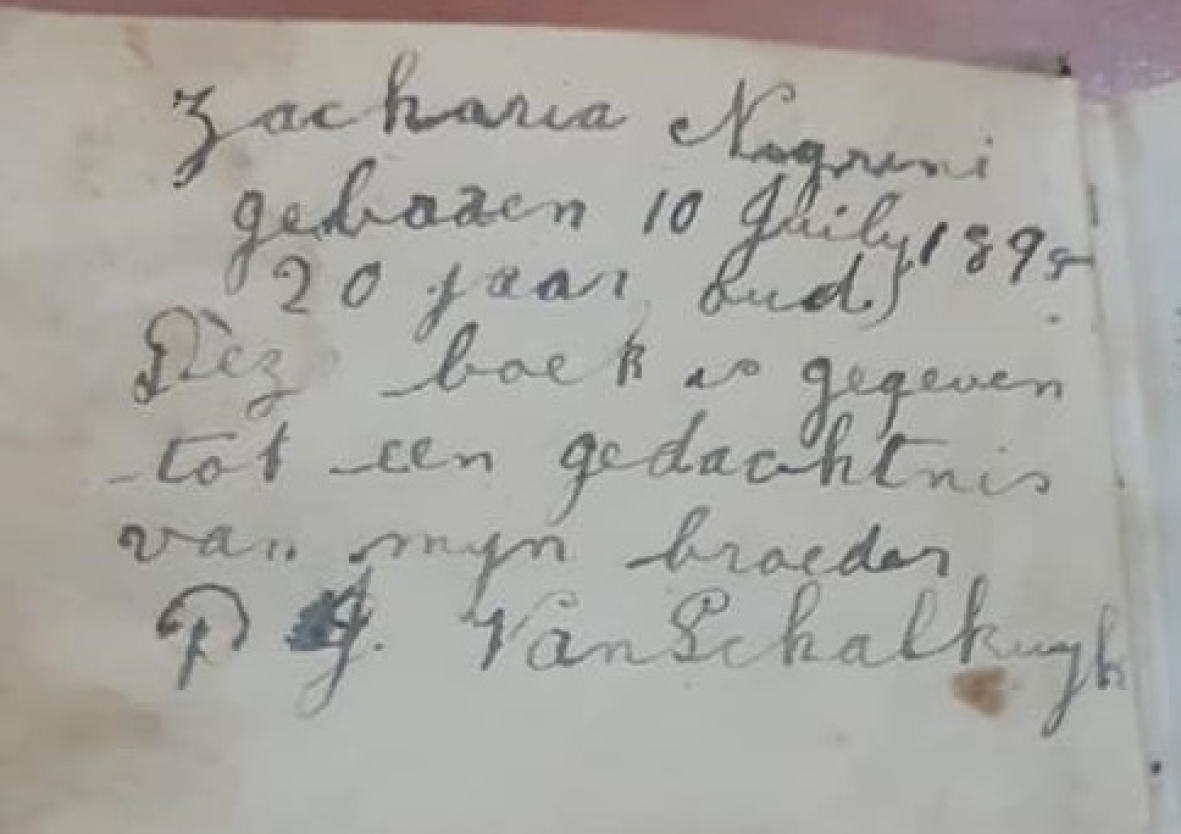 Zacharia Nagrini
geboren 10 Juily 1898
20 jaar oud)
Deze boek is gegeven
tot een gedachtnis
van myn broeder
P J. Van Schalkwyk